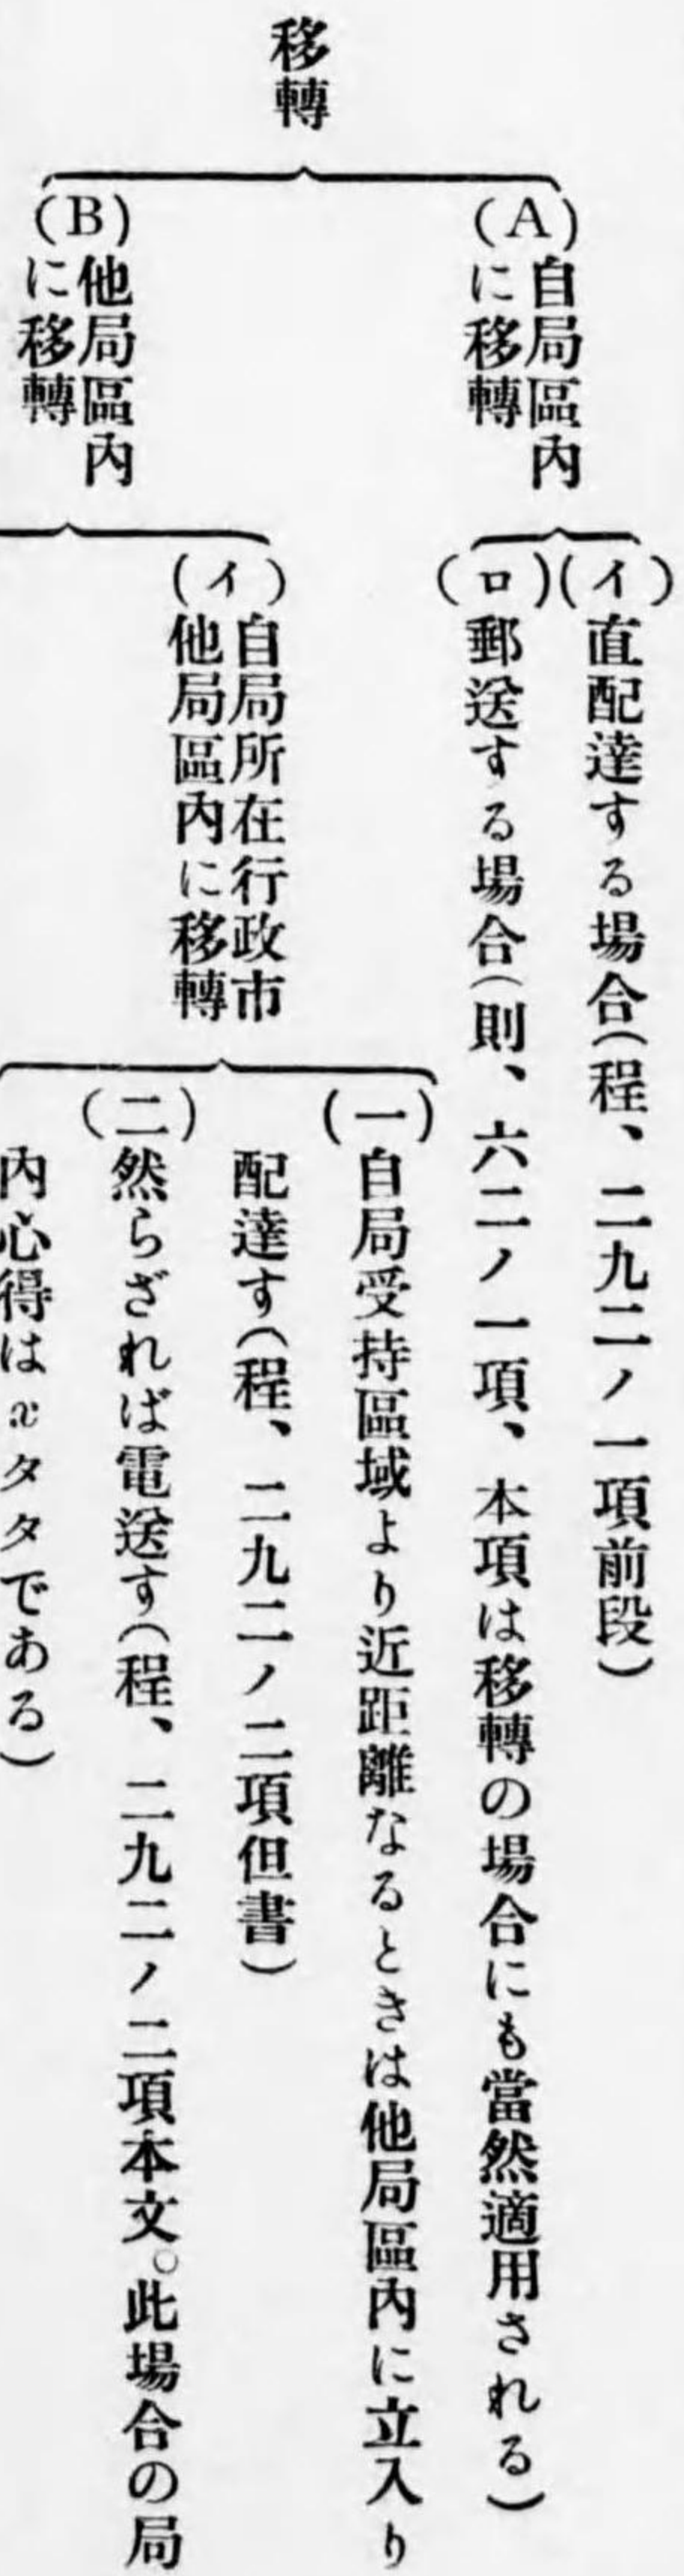 移轉
(A)自局區內
に移轉
(イ)直配達する場合(程、二九二ノ一項前段)
(ロ)郵送する場合(則、六二ノ一項、本項は移轉の場合にも當然適用される)
(B)他局區內
に移轉
(イ)自局所在行政市
他局區內に移轉
(一)自局受持區域より近距離なるときは他局區內に立入り
配達す(程、二九二ノ二項但書)
(二)然らざれば電送す(程、二九二ノ二項本文。此場合の局
內心得はxタタである)